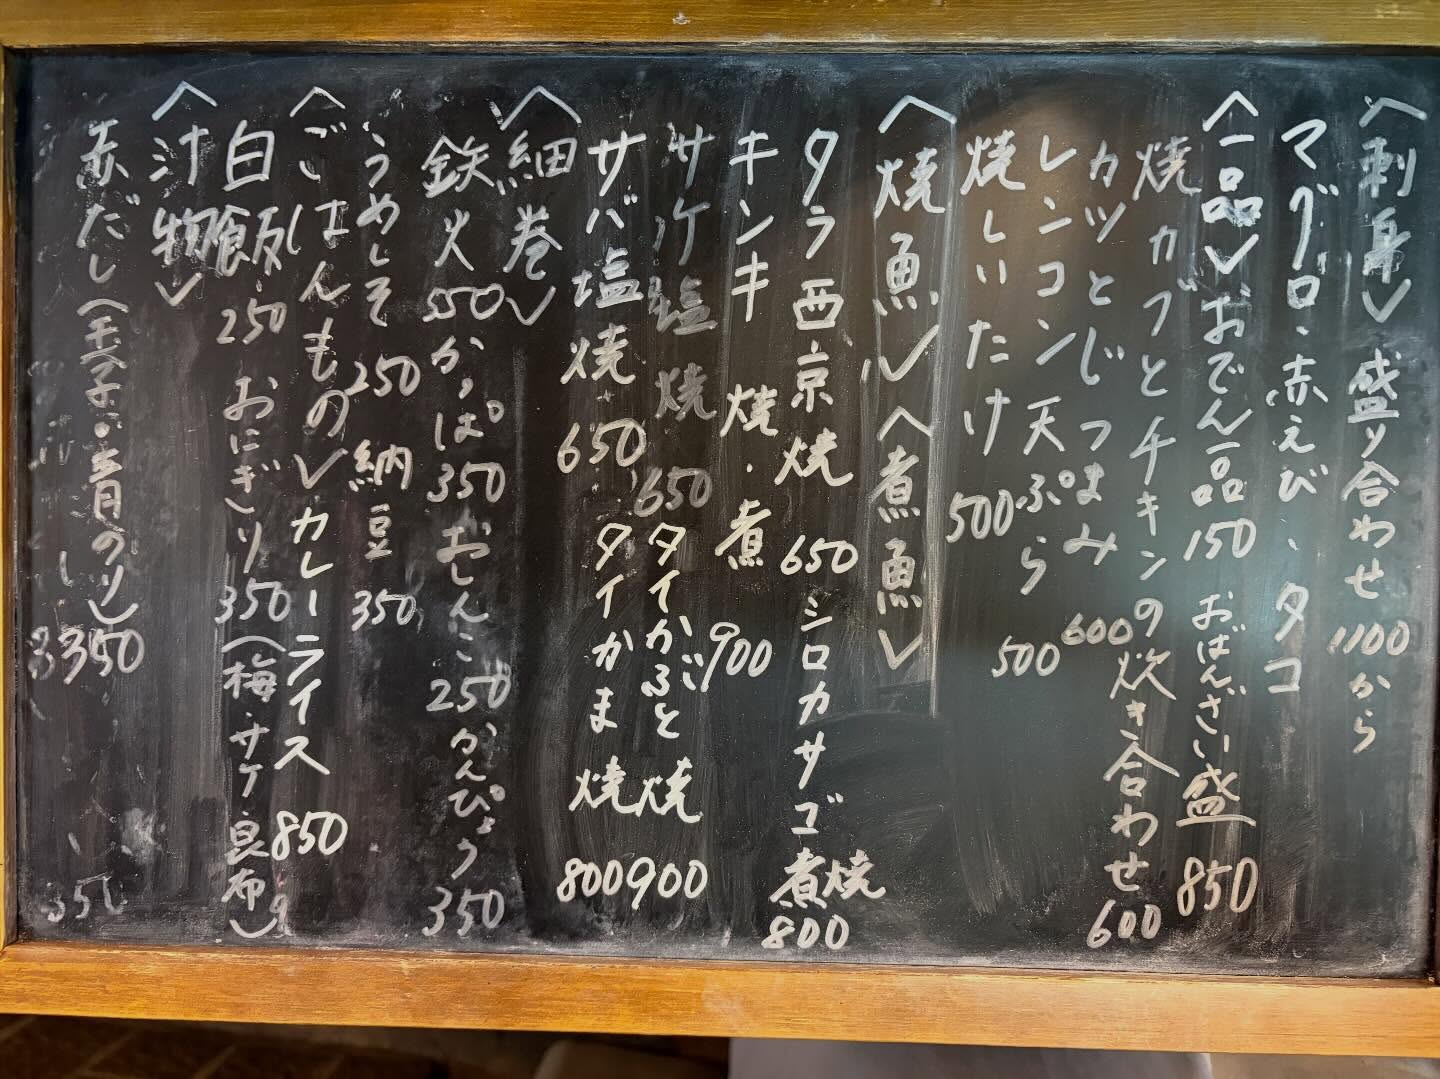 〈刺身〉盛り合わせ1100から
マグロ・赤えび、タコ
〈一品〉おでん一品150 おばんざい盛850
焼カブとチキンの炊き合わせ600
カツとじつまみ600
レンコン天ぷら500
焼しいたけ500
〈焼魚〉〈煮魚〉
タラ西京焼650 シロカサゴ煮焼800
キンキ焼・煮900
サケ塩焼650 タイかぶと焼900
サバ塩焼650 タイかま焼800
〈細巻〉
鉄火550かっぱ350おしんこ250かんぴょう350
うめしそ250納豆350
〈ごはんもの〉カレーライス850
白飯250 おにぎり350(梅・サケ・昆布)
〈汁物〉
赤だし(玉子・青のり)350